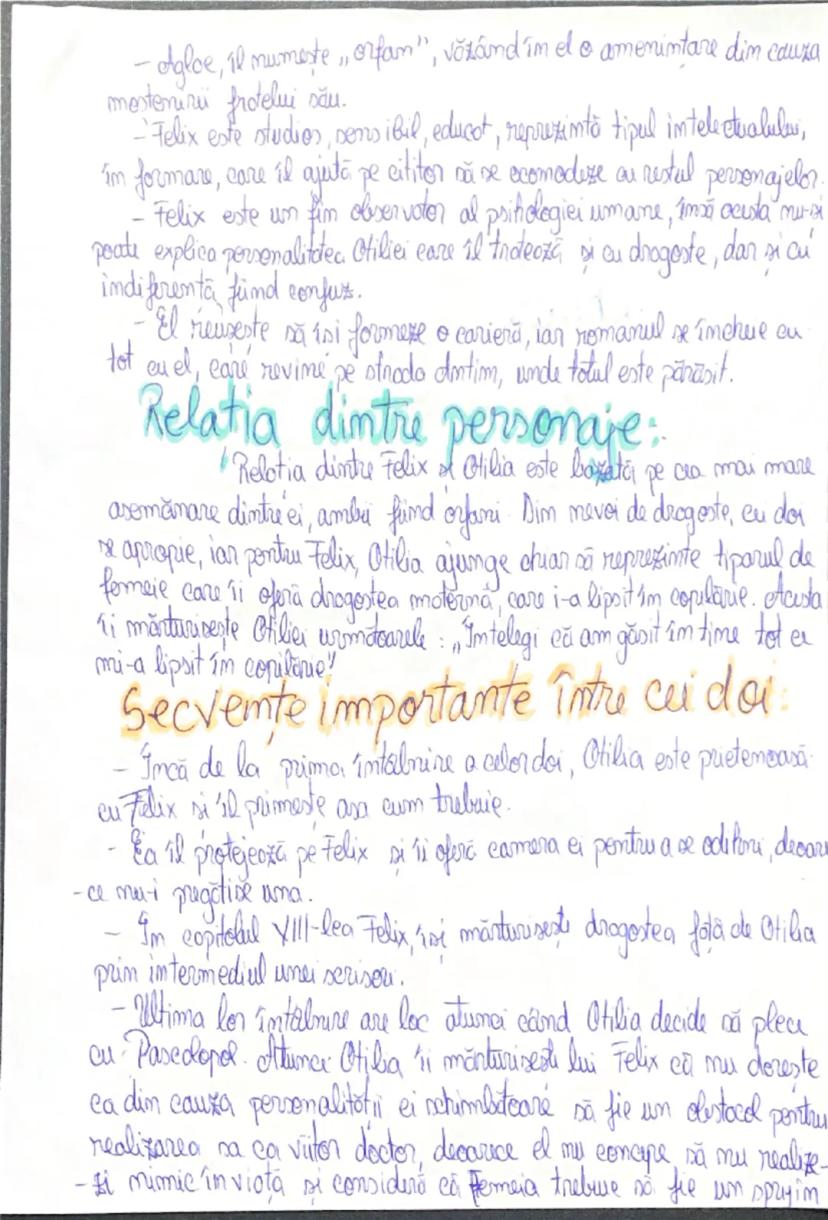 - Aglae, îl numește „orfan", văzând în el o amenințare din cauza
moștenirii fratelui său.
- Felix este studios, sensibil, educat, reprezintă tipul intelectualului,
în formare, care îl ajută pe cititor să se acomodeze cu restul personajelor.
- Felix este un fin observator al psihologiei umane, însă acesta nu-și
poate explica personalitatea Otiliei care îl tratează și cu dragoste, dar și cu
indiferență, fiind confuz.
- El reușește să își formeze o carieră, iar romanul se încheie cu
tot cu el, care revine pe strada Antim, unde totul este părăsit.
Relația dintre personaje:
Relația dintre Felix și Otilia este bazată pe cea mai mare
asemănare dintre ei, ambii fiind orfani. Din nevoi de dragoste, cei doi
se apropie, iar pentru Felix, Otilia ajunge chiar să reprezinte tiparul de
femeie care îi oferă dragostea maternă, care i-a lipsit în copilărie. Acesta
îi mărturisește Otiliei următoarele: „Înțelegi că am găsit în tine tot ce
mi-a lipsit în copilărie!
Secvențe importante între cei doi:
- Încă de la prima întâlnire a celor doi, Otilia este prietenoasă
cu Felix și îl primește așa cum trebuie.
- Ea îl protejează pe Felix și îi oferă camera ei pentru a se odihni, deoar
-ce nu-i pregătise una.
- În capitolul XVIII-lea Felix, își mărturisești dragostea față de Otilia
prin intermediul unei scrisori.
- Ultima lor întâlnire are loc atunci când Otilia decide să plece
cu Pascalopol. Atunci Otilia îi mărturisești lui Felix că nu dorește
ca din cauza personalității ei schimbătoare să fie un obstacol pentru
realizarea sa ca viitor doctor, deoarece el nu concepe să nu realize-
-zi nimic în viață și consideră că femeia trebuie să fie un sprijin